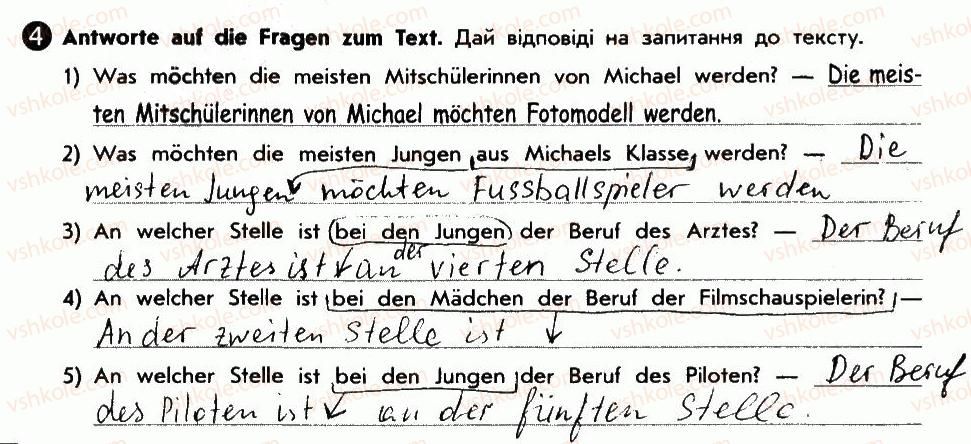 4 Antworte auf die Fragen zum Text. Дай відповіді на запитання до тексту.
1) Was möchten die meisten Mitschülerinnen von Michael werden? — Die meis-
ten Mitschülerinnen von Michael möchten Fotomodell werden.
2) Was möchten die meisten Jungen aus Michaels Klasse werden? — Die
meisten Jungen möchten Fussballspieler werden
3) An welcher Stelle ist bei den Jungen der Beruf des Arztes? — Der Beruf
des Arztes ist an der vierten Stelle.
4) An welcher Stelle ist bei den Mädchen der Beruf der Filmschauspielerin? —
An der zweiten Stelle ist
5) An welcher Stelle ist bei den Jungen der Beruf des Piloten? — Der Beruf
des Piloten ist an der fünften Stelle.